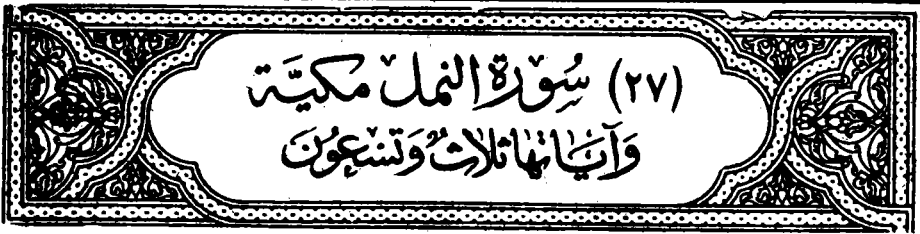 (٢٧) سُورَة النمل مكيَّة
وَآيَاتها ثلاثٌ وَتسْعُونَ